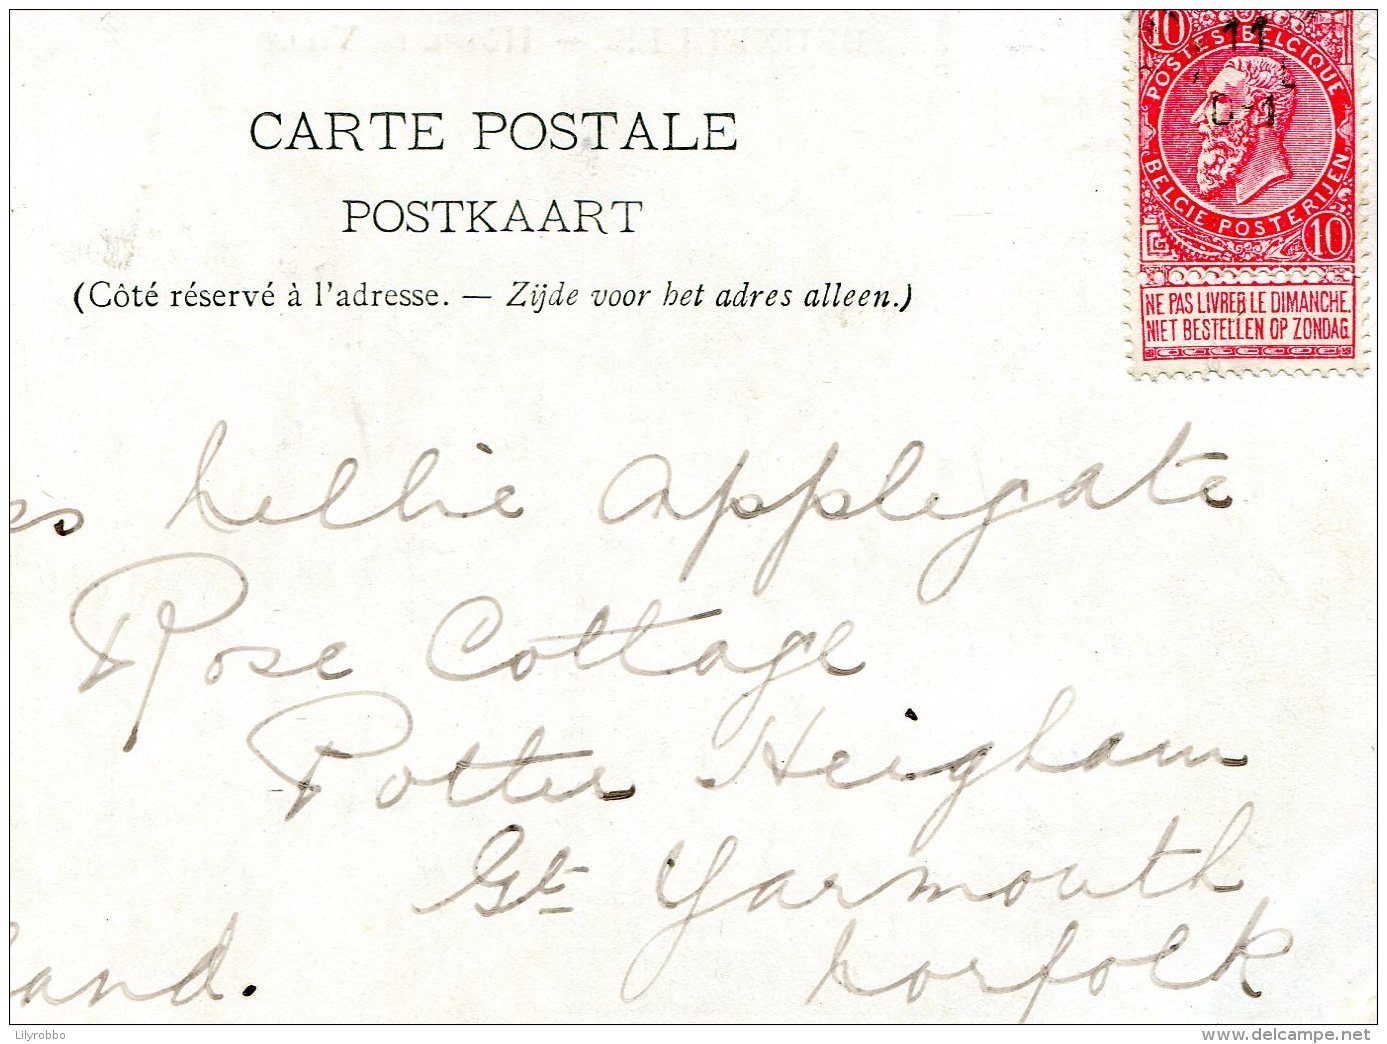 CARTE POSTALE
POSTKAART
(Côté réservé à l'adresse. — Zijde voor het adres alleen.)
10 10
POSTES BELGIQUE
BELGIE POSTERIJEN
11
NE PAS LIVRER LE DIMANCHE.
NIET BESTELLEN OP ZONDAG.
ss Nellie Applegate
Rose Cottage
Potter Heigham
Gt Yarmouth
Norfolk
land.
Lilyrobbo
www.delcampe.net